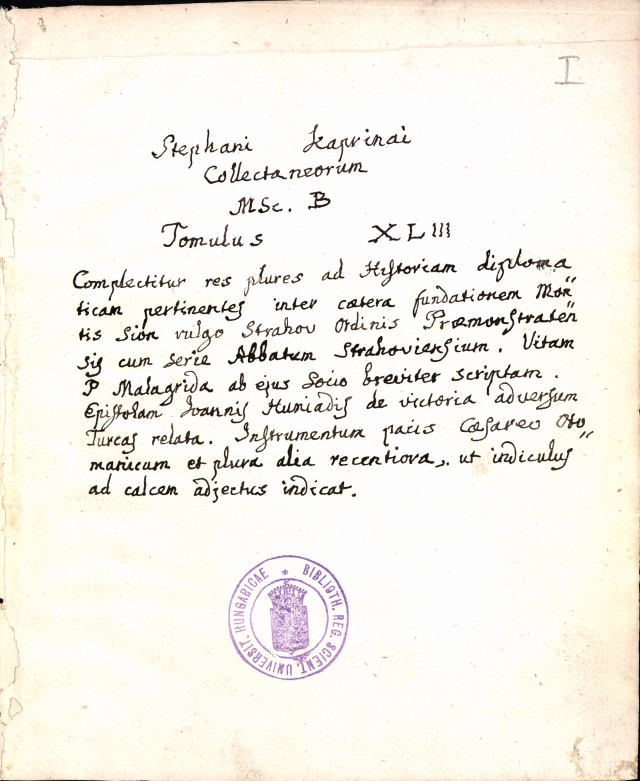 I
Stephani Kaprinai
Collectaneorum
MSc. B
Tomulus XLIII
Complectitur res plures ad Historicam diploma
ticam pertinentes inter cætera fundationem Mon"
tis Sion vulgo Strahov Ordinis Præmonstraten"
sis cum serie Abbatum Strahoviensium. Vitam
P Malagrida ab ejus Socio breviter scriptam.
Epistolam Ioannis Huniadis de victoria adversum
Turcas relata. Instrumentum pacis Cæsareo Oto"
manicum et plura alia recentiora, ut indiculus
ad calcem adjectus indicat.
* BIBLIOTH. REG. SCIENT. UNIVERSIT. HUNGARICAE